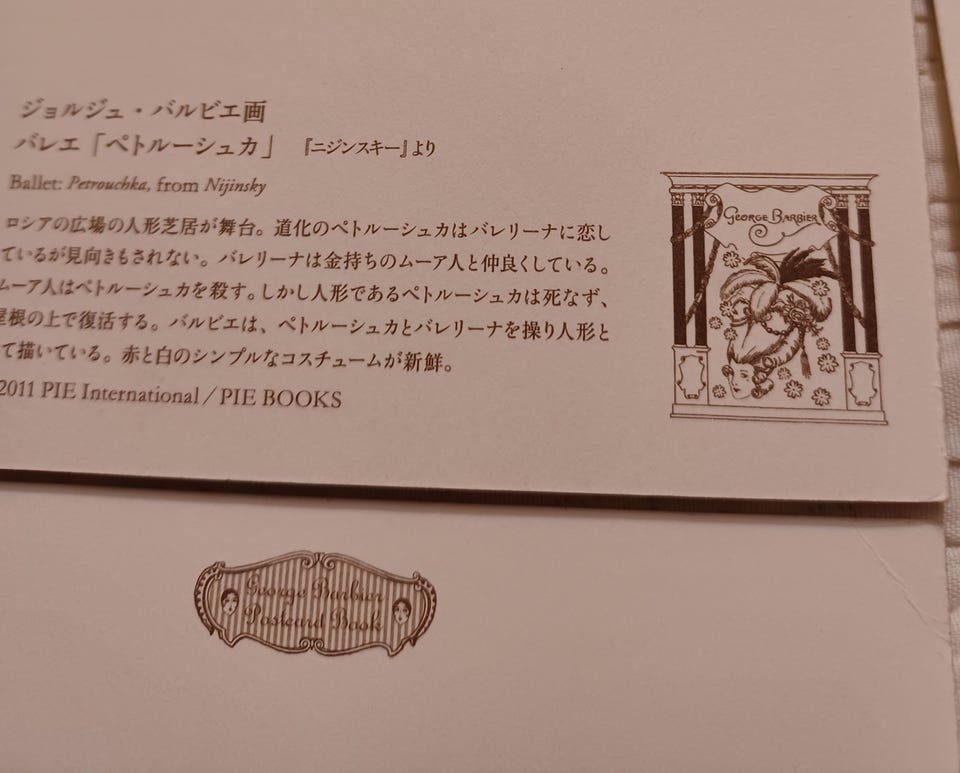 ジョルジュ・バルビエ画
バレエ「ペトルーシュカ」 『ニジンスキー』より
Ballet: Petrouchka, from Nijinsky
ロシアの広場の人形芝居が舞台。道化のペトルーシュカはバレリーナに恋し
ているが見向きもされない。バレリーナは金持ちのムーア人と仲良くしている。
ムーア人はペトルーシュカを殺す。しかし人形であるペトルーシュカは死なず、
屋根の上で復活する。バルビエは、ペトルーシュカとバレリーナを操り人形と
て描いている。赤と白のシンプルなコスチュームが新鮮。
2011 PIE International / PIE BOOKS
GEORGE BARBIER
George Barbier
Postcard Book